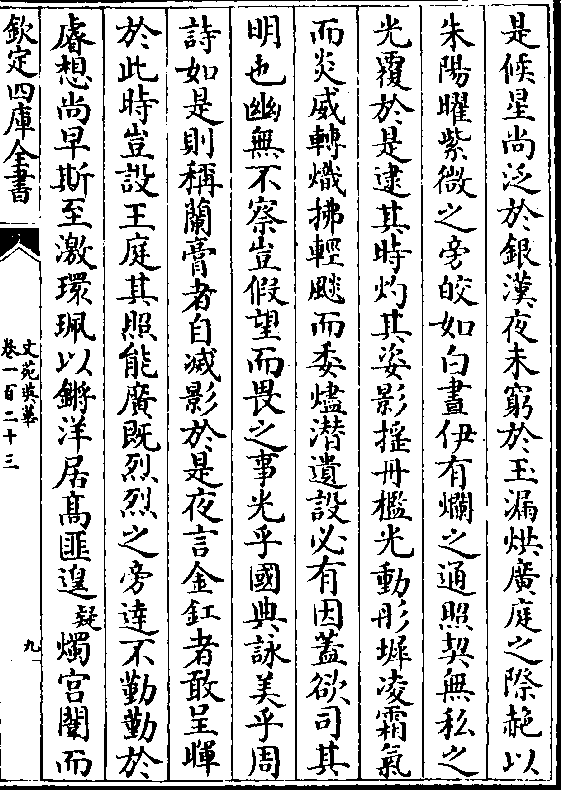 是候星尚泛於銀漢夜未窮於玉漏烘廣庭之際赩以
朱陽曜紫微之旁皎如白晝伊有爛之通照契無私之
光覆於是逮其時灼其姿影揺丹檻光動彤墀凌霜氣
而炎威轉熾拂輕飈而委燼潜遺設必有因蓋欲司其
明也幽無不察豈假望而畏之事光乎國典詠美乎周
詩如是則稱蘭膏者自滅影於是夜言金釭者敢呈暉
於此時豈設王庭其照能廣既烈烈之旁達不勤勤於
睿想尚早斯至激環珮以鏘洋居髙匪遑疑燭宫闈而
欽定四庫全書
文苑英華
卷一百二十三
九